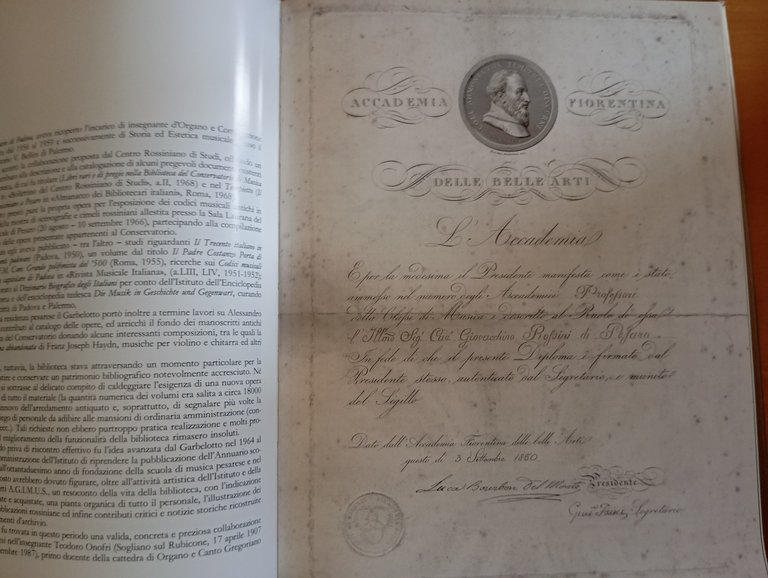 di Padova, aveva ricoperto l'incarico di insegnante d'Organo e Composizione
dal 1956 al 1959 e successivamente di Storia ed Estetica musicale presso il
V. Bellini di Palermo.
la collaborazione proposta dal Centro Rossiniano di Studi, offrendo un
alla descrizione e alla catalogazione di alcuni pregevoli documenti esistenti
(Libri rari e di pregio nella Biblioteca del Conservatorio di Musica
del Centro Rossiniano di Studi», a.II, 1968) e nel
a Pesaro in «Almanacco dei Bibliotecari italiani», Roma, 1968).
prestò pure la propria opera per l'esposizione dei codici musicali antichi in
di autografe e cimeli rossiniani allestita presso la Sala Laurana del
di Pesaro (20 agosto - 10 settembre 1966), partecipando alla compilazione
delle opere possedute appartenenti al Conservatorio.
pubblicato – tra l'altro – studi riguardanti Il Trecento italiano in
padovani (Padova, 1950), un volume dal titolo Il Padre Costanzo Porta di
Cremona O.F.M. Con. Grande polifonista del '500 (Roma, 1955), ricerche sui Codici musicali
capitolare di Padova in «Rivista Musicale Italiana», (a.LIII, LIV, 1951-1952;
al Dizionario Biografico degli Italiani per conto dell'Istituto dell'Enciclopedia
e dell'enciclopedia tedesca Die Musik in Geschichte und Gegenwart, curando
di Padova e Palermo.
residenza pesarese il Garbelotto portò inoltre a termine lavori su Alessandro
contributi al catalogo delle opere, ed arricchì il fondo dei manoscritti antichi
del Conservatorio donando alcune interessanti composizioni, tra le quali la
abbandonata di Franz Joseph Haydn, musiche per violino e chitarra ed altri
tuttavia, la biblioteca stava attraversando un momento particolare per la
e conservare un patrimonio bibliografico notevolmente accresciuto. Né
si sottrasse al delicato compito di caldeggiare l'esigenza di una nuova opera
di tutto il materiale (la quantità numerica dei volumi era salita a circa 18000
rinnovo dell'arredamento antiquato e, soprattutto, di segnalare più volte la
di personale da adibire alle mansioni di ordinaria amministrazione (con-
ecc.). Tali richieste non ebbero purtroppo pratica realizzazione e molti pro-
miglioramento della funzionalità della biblioteca rimasero insoluti.
privo di riscontro effettivo fu l'idea avanzata dal Garbelotto nel 1964 al
dell'Istituto di riprendere la pubblicazione dell'Annuario sco-
all'ottantaduesimo anno di fondazione della scuola di musica pesarese e nel
avrebbero dovuto figurare, oltre all'attività artistica dell'Istituto e della
A.G.I.M.U.S., un resoconto della vita della biblioteca, con l'indicazione
e acquistate, una pianta organica di tutto il personale, l'illustrazione dei
pubblicazioni rossiniane ed infine contributi critici e notizie storiche ricostruite
d'archivio.
fu trovata in questo periodo una valida, concreta e preziosa collaborazione
nell'insegnante Teodoro Onofri (Sogliano sul Rubicone, 17 aprile 1907
1987), primo docente della cattedra di Organo e Canto Gregoriano
ACCADEMIA FIORENTINA
DELLE BELLE ARTI
L'Accademia
E per la medesima il Presidente manifesta come è stato
ammesso nel numero degli Accademici Professori
della Classe di Musica e descritto al Ruolo di essa
l'Illmo Sig. Cav. Giovacchino Rossini di Pesaro
In fede di che il presente Diploma è firmato dal
Presidente stesso, autenticato dal Segretario, e munito
del Sigillo
Dato dall'Accademia Fiorentina delle belle Arti
questo di 3 Settembre 1860
Luca Bourbon del Monte Presidente
Segretario